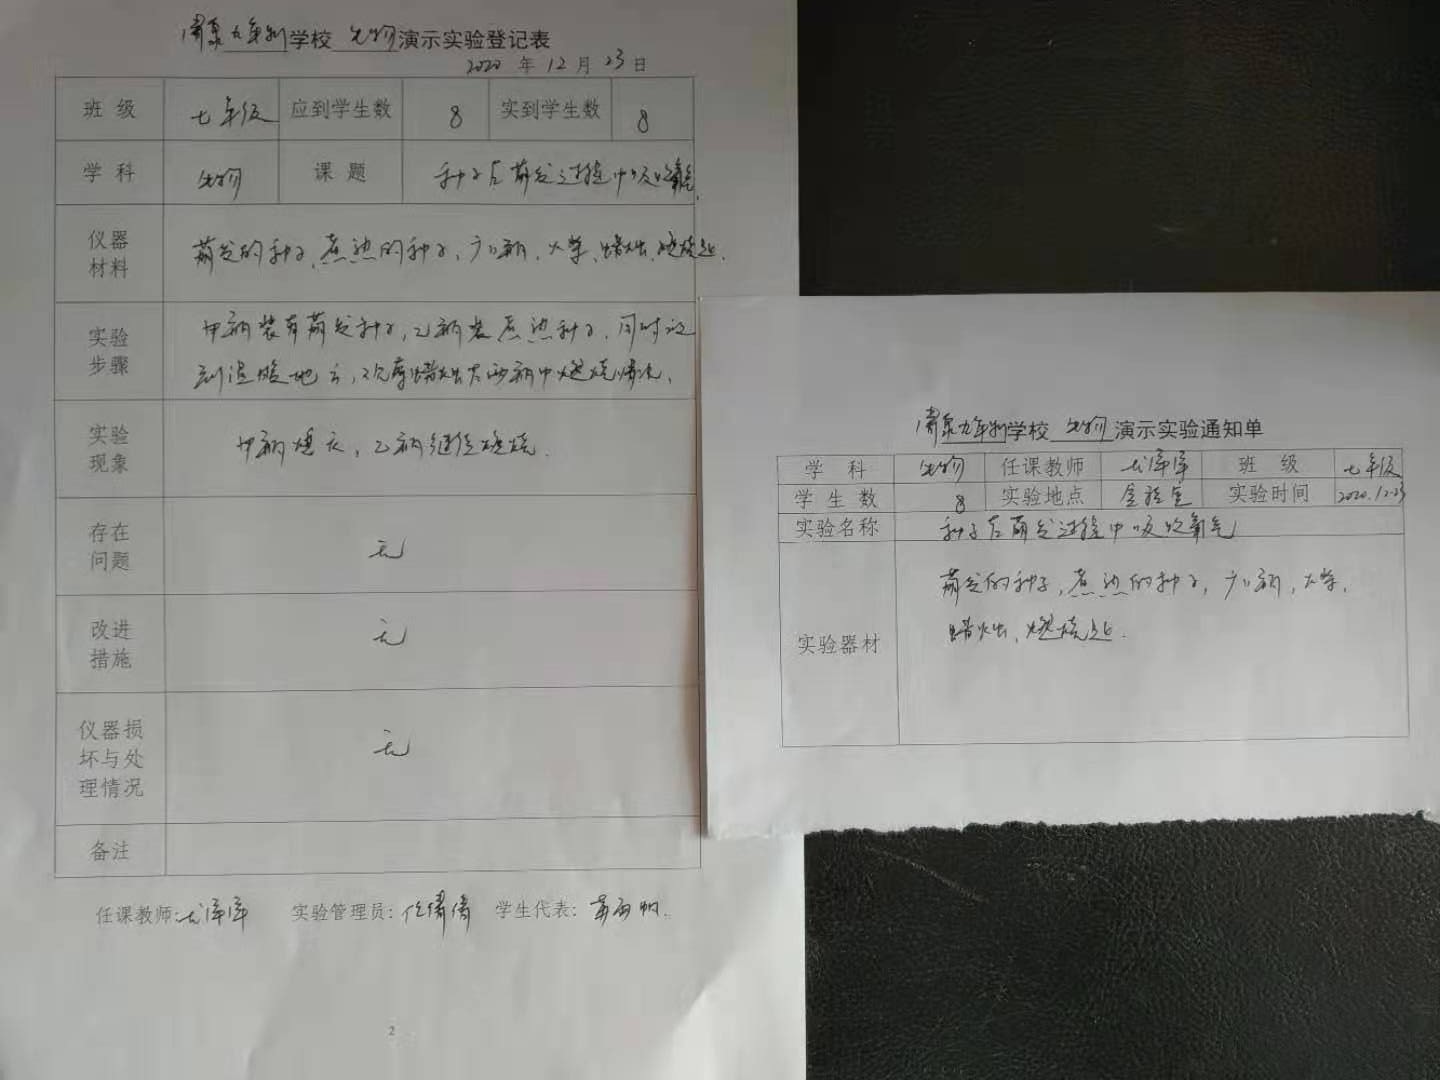 九年制学校 生物演示实验登记表
2020 年 12 月 23 日
班 级 七年级 应到学生数 8 实到学生数 8
学 科 生物 课 题 种子在萌发过程中吸收氧气
仪器材料 萌发的种子、煮熟的种子、广口瓶、火柴、蜡烛、燃烧匙.
实验步骤 甲瓶装有萌发种子,乙瓶装煮熟种子,同时放
到温暖地方,观察蜡烛在两瓶中燃烧情况.
实验现象 甲瓶熄灭,乙瓶继续燃烧.
存在问题 无
改进措施 无
仪器损坏与处理情况 无
备注
任课教师: 实验管理员:任倩倩 学生代表:
2
九年制学校 生物演示实验通知单
学 科 生物 任课教师 班 级 七年级
学 生 数 8 实验地点 实验室 实验时间 2020.12.23
实验名称 种子在萌发过程中吸收氧气
实验器材 萌发的种子,煮熟的种子,广口瓶,火柴,
蜡烛、燃烧匙.